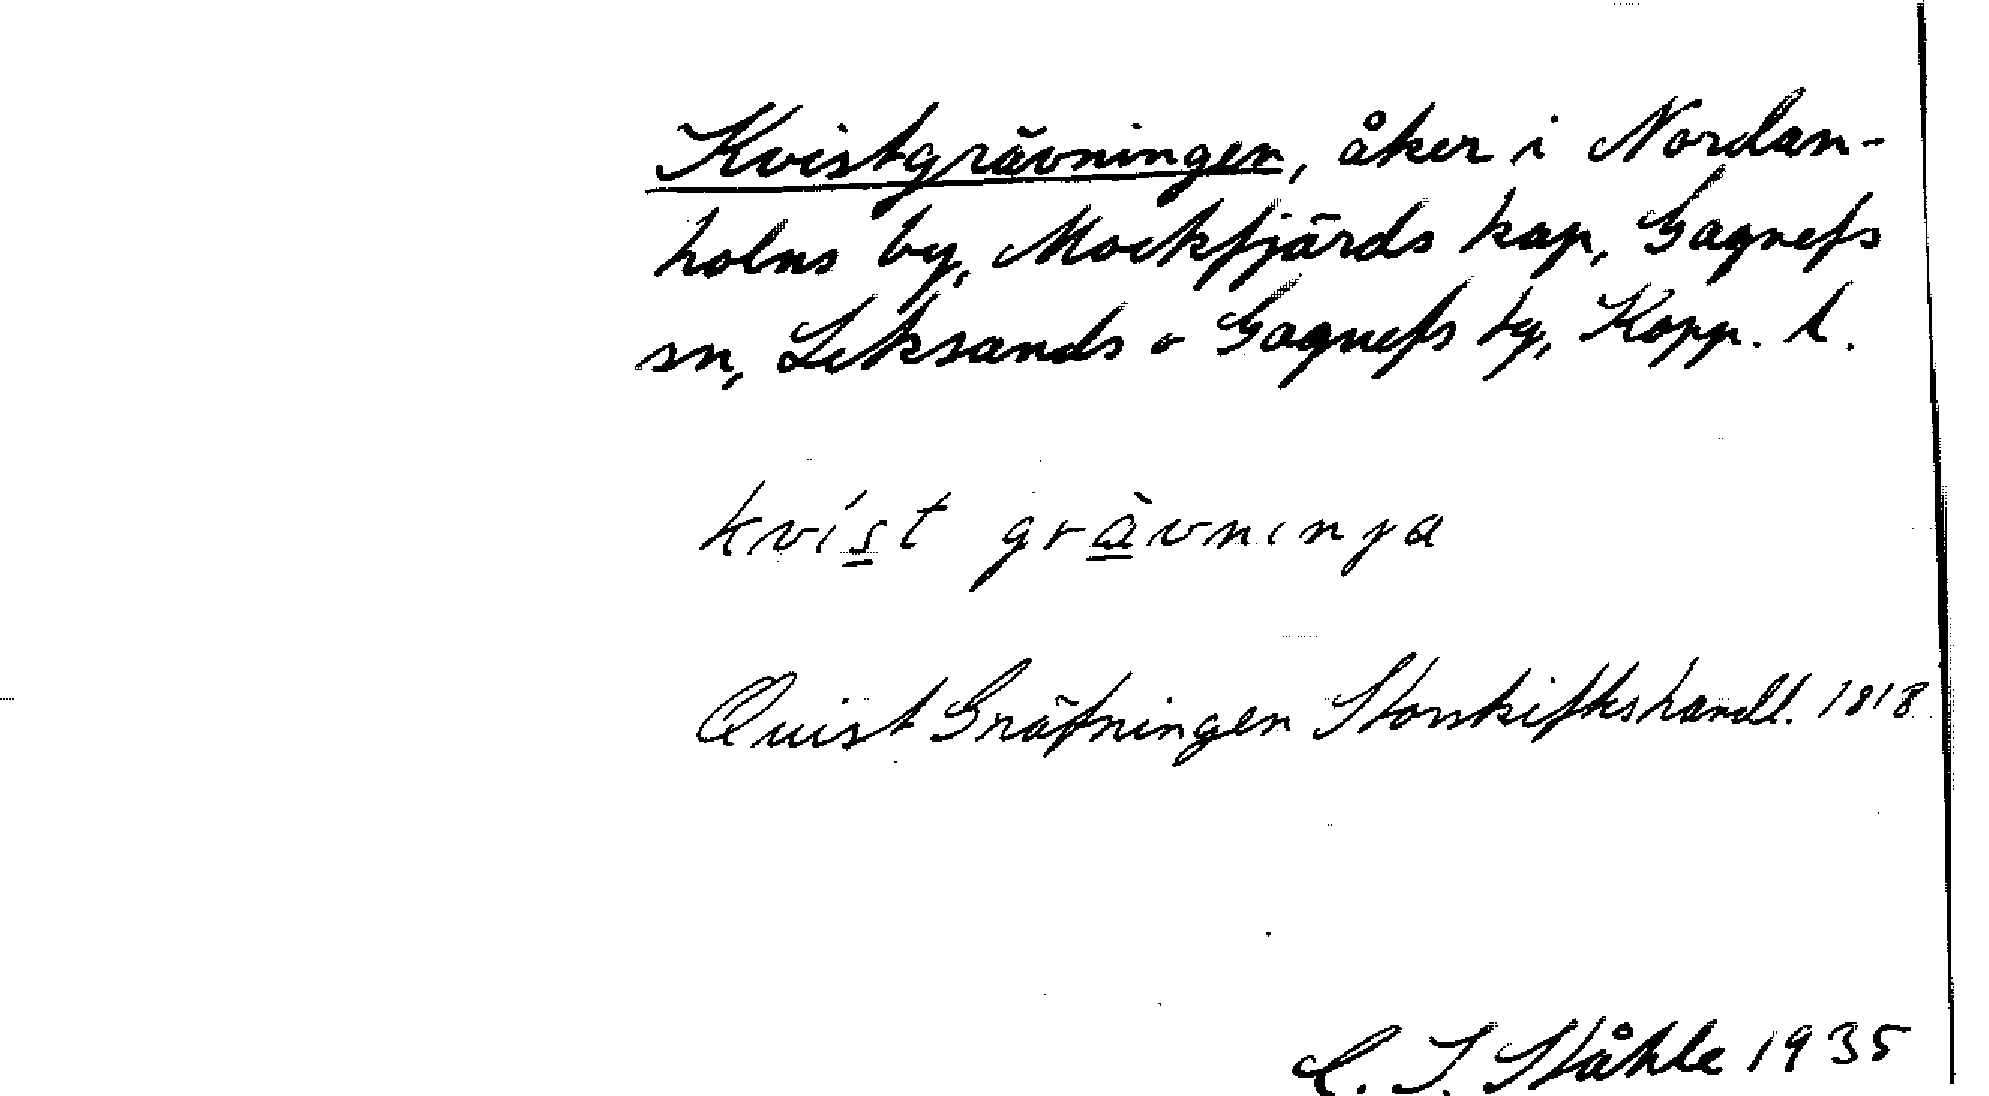 Kvistgrävningen, åker i Nordan-
holns by, Mockfjärds kap, Gagnefs
sn, Leksands o Gagnefs tg, Kopp. l.
kvíst grävninȷa
Quist Gräfningen Storskifteshandl. 1818.
C. I. Ståhle 1935